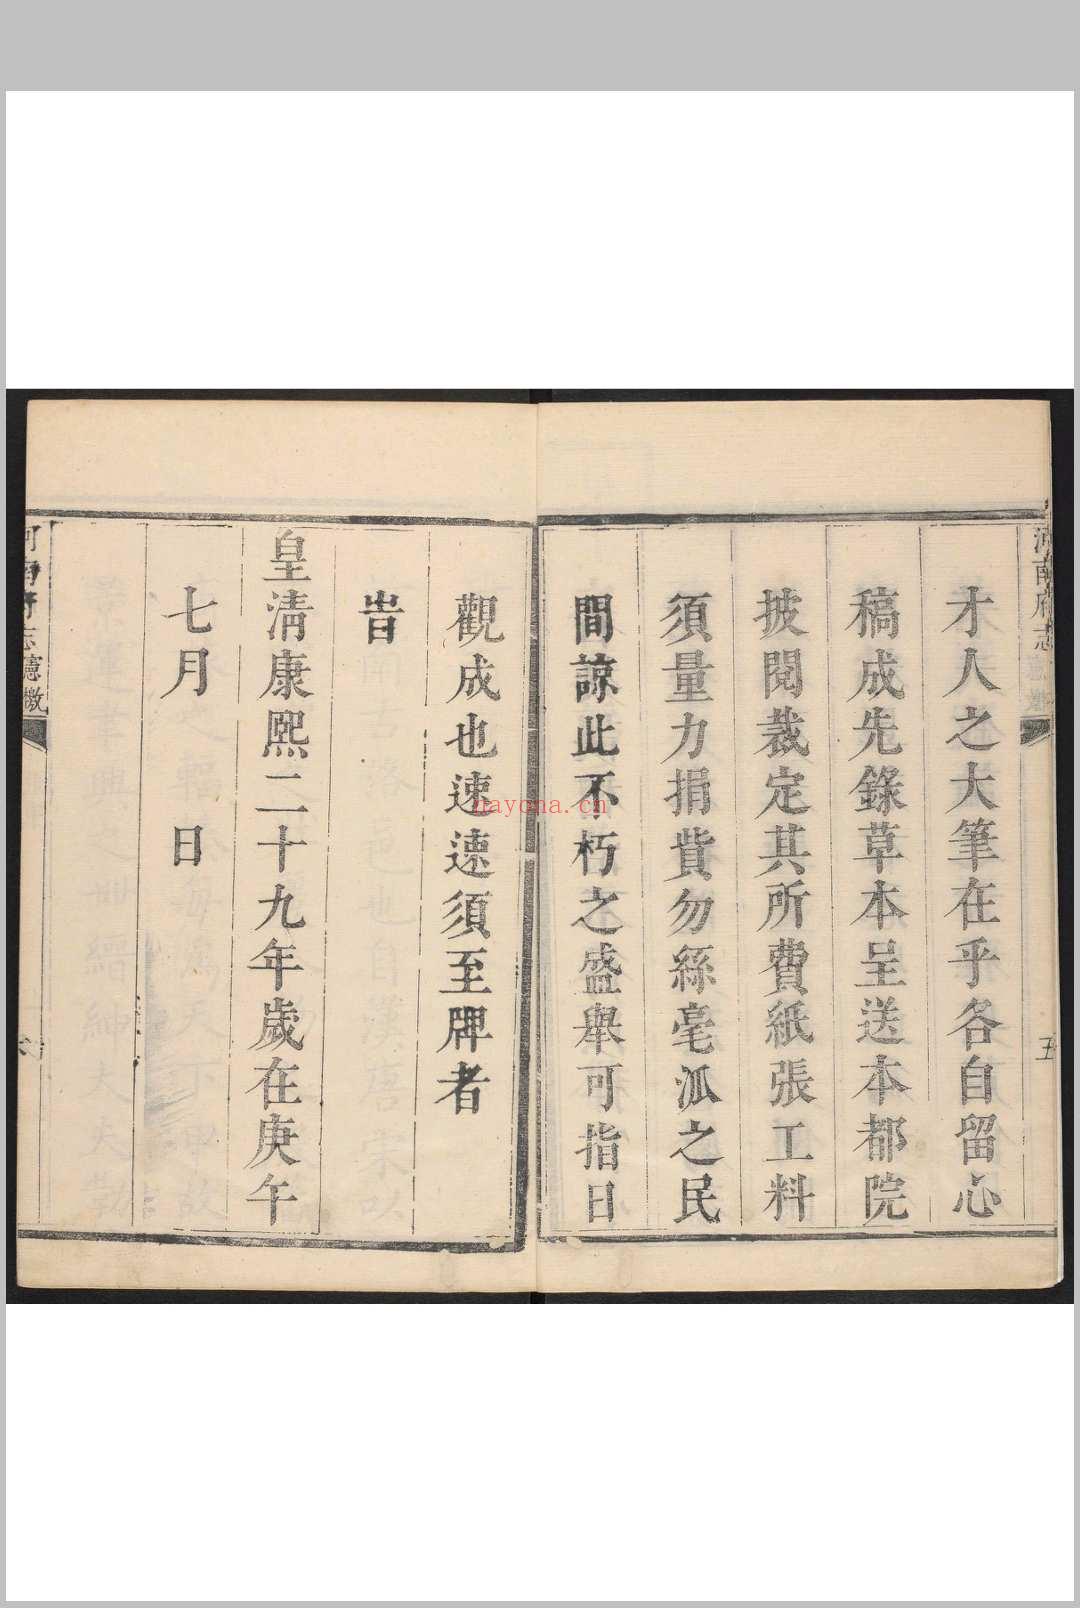 河南府志
五
才人之大筆在乎各自留心
稿成先錄草本呈送本都院
披閱裁定其所費紙張工料
須量力捐貲勿絲毫派之民
間諒此不朽之盛舉可指日
觀成也速速須至牌者
旹
皇清康熙二十九年歲在庚午
七月　　日
河南府志 憲檄
nayona.cn